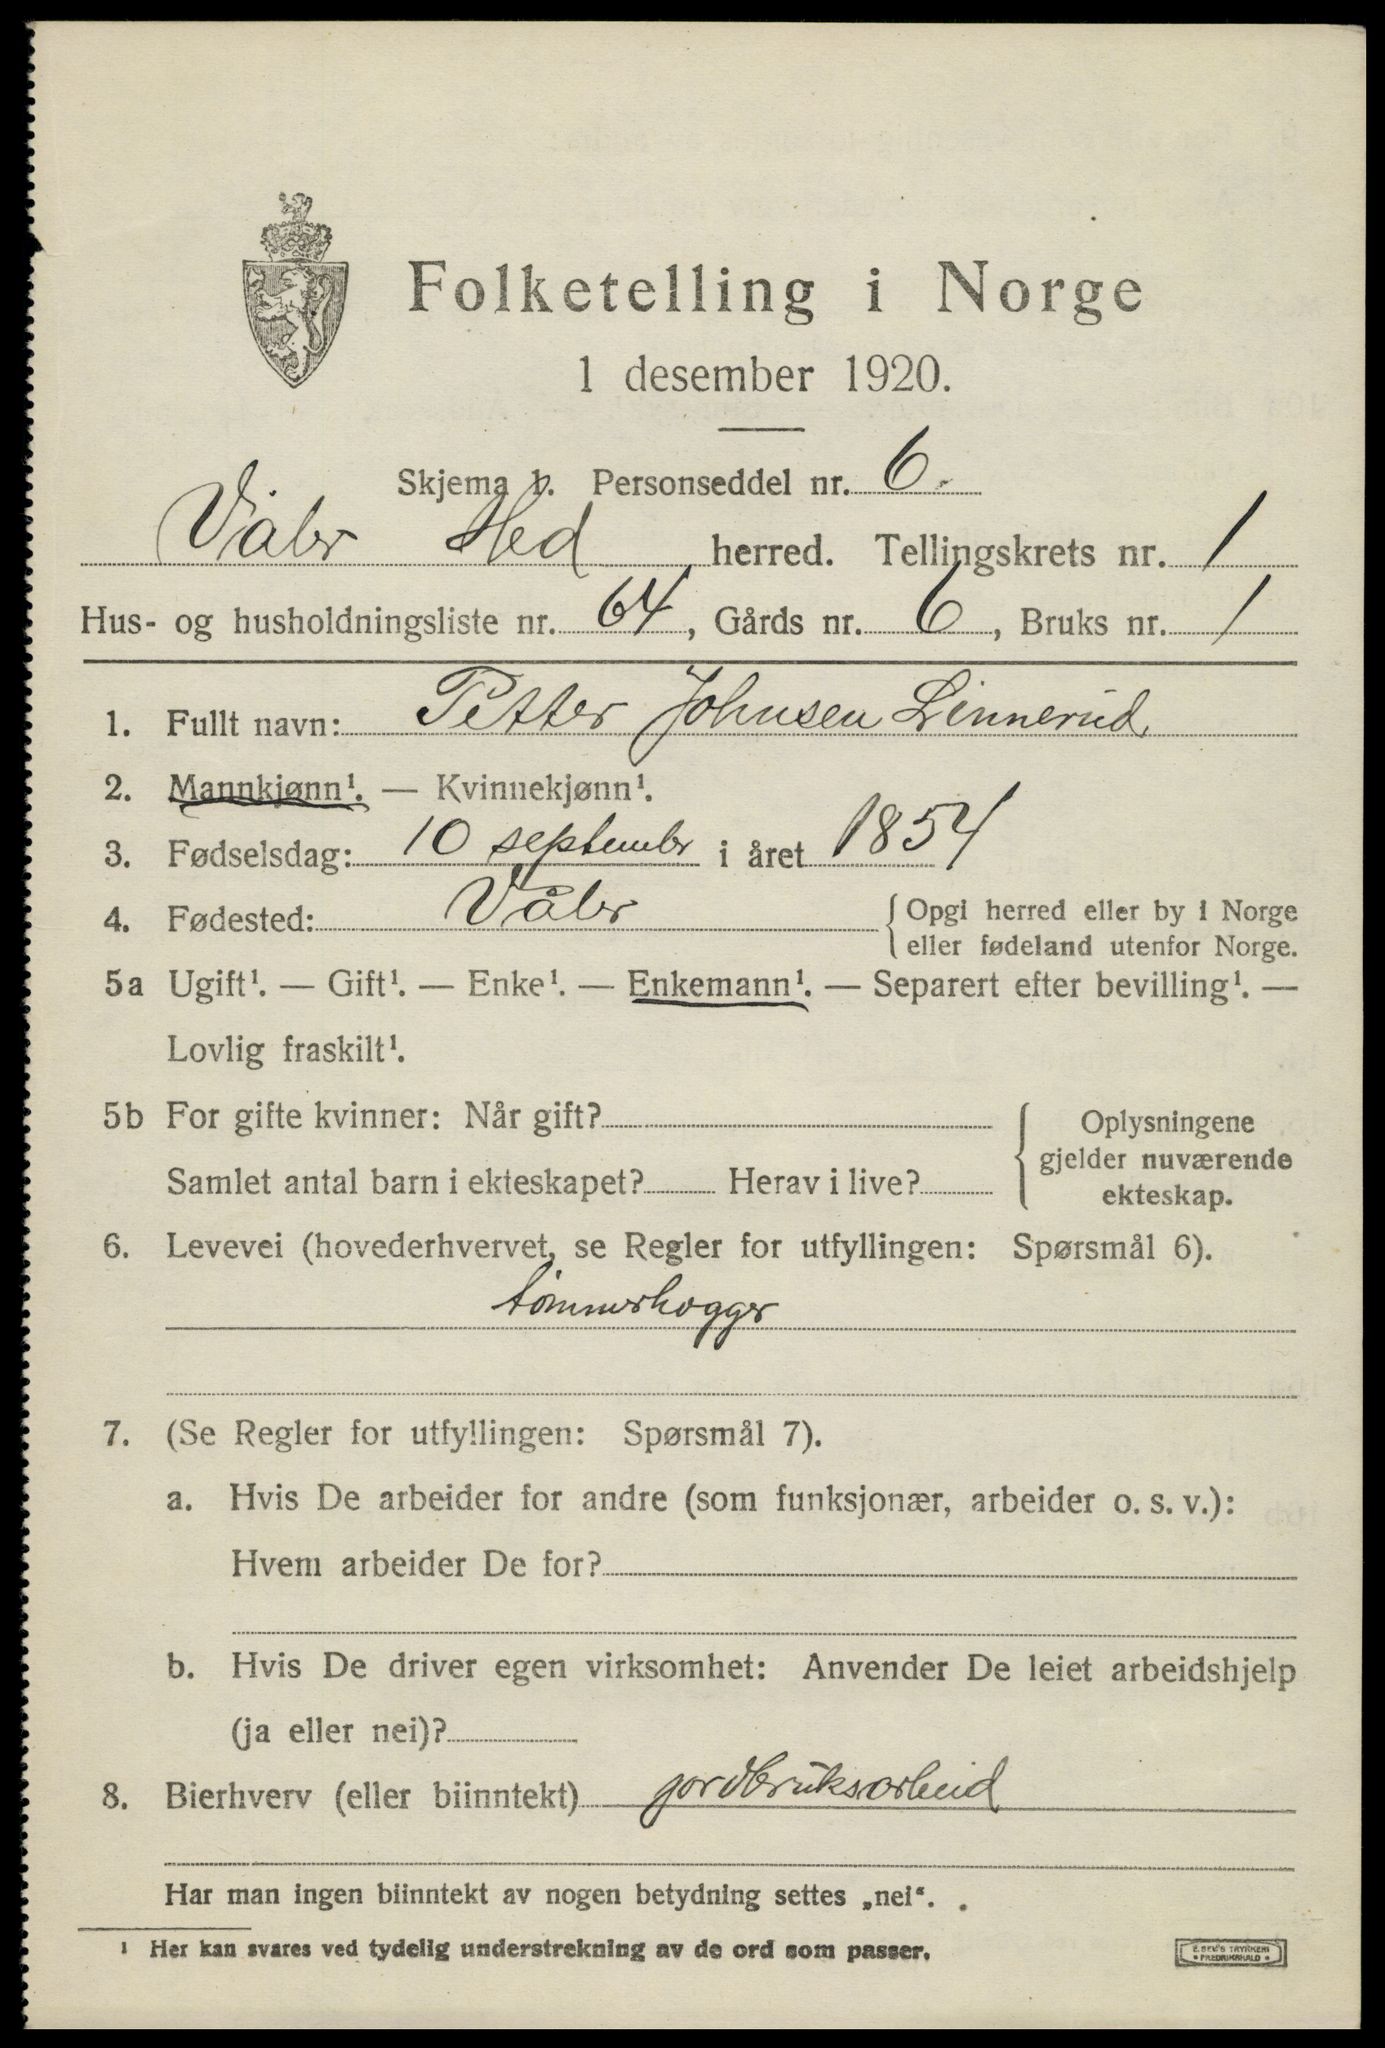 Folketelling i Norge
1 desember 1920.
Skjema 1. Personseddel nr. 6.
Våler Hed herred. Tellingskrets nr. 1
Hus- og husholdningsliste nr. 64, Gårds nr. 6, Bruks nr. 1
1. Fullt navn: Petter Johnsen Linnerud.
2. Mannkjønn¹. — Kvinnekjønn¹.
3. Fødselsdag: 10 september i året 1854
4. Fødested: Våler
Opgi herred eller by i Norge
eller fødeland utenfor Norge.
5a Ugift¹. — Gift¹. — Enke¹. — Enkemann¹. — Separert efter bevilling¹. —
Lovlig fraskilt¹.
5b For gifte kvinner: Når gift?
Samlet antal barn i ekteskapet? Herav i live?
Oplysningene
gjelder nuværende
ekteskap.
6. Levevei (hovederhvervet, se Regler for utfyllingen: Spørsmål 6).
tømmerhogger
7. (Se Regler for utfyllingen: Spørsmål 7).
a. Hvis De arbeider for andre (som funksjonær, arbeider o. s. v.):
Hvem arbeider De for?
b. Hvis De driver egen virksomhet: Anvender De leiet arbeidshjelp
(ja eller nei)?
8. Bierhverv (eller biinntekt) jordbruksarbeid
Har man ingen biinntekt av nogen betydning settes „nei“.
¹ Her kan svares ved tydelig understrekning av de ord som passer.
E. SEM'S TRYKKERI
• FREDRIKSHALD •